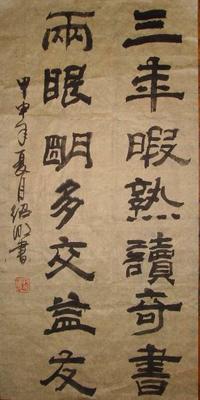 三年暇熟讀奇書
兩眼明多交益友
甲申年夏月紹明書